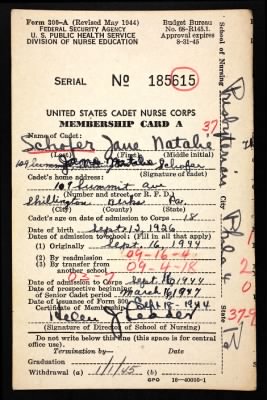 Form 300-A (Revised May 1944)
FEDERAL SECURITY AGENCY
U. S. PUBLIC HEALTH SERVICE
DIVISION OF NURSE EDUCATION
Budget Bureau
No. 68-R145.1.
Approval expires
8-31-45
SERIAL No 185615
UNITED STATES CADET NURSE CORPS
MEMBERSHIP CARD A
37-
Name of Cadet:
Schofer Jane Natalie
(Last) (First) (Middle initial)
Jane Natalie Schofer
Cadet's home address:
109 Summit Ave
(Number and street or R. F. D.)
Shillington Berks Pa.
(City) (County) (State)
Cadet's age on date of admission to Corps - 18
Date of birth Sept. 13, 1926
Dates of admission to school: (Fill in all that apply)
(1) Originally Sept. 16, 1944
(2) By readmission 09-16-4
(3) By transfer from 09-4-18
another school
Date of admission to Corps Sept. 16 1944
Date of prospective beginning
Senior Cadet period March 16, 1947
Date of issuance of Form 300
Certificate of Membership Sept 18-1944
Helen J. Leader
(Signature of Director of School of Nursing)
Do not write below this line (this space is for central
office use).
Termination by— Date
Graduation
Withdrawal (a) 1/1/45
GPO 16—40005-1
School of Nursing Presbyterian City Phila State
37-9